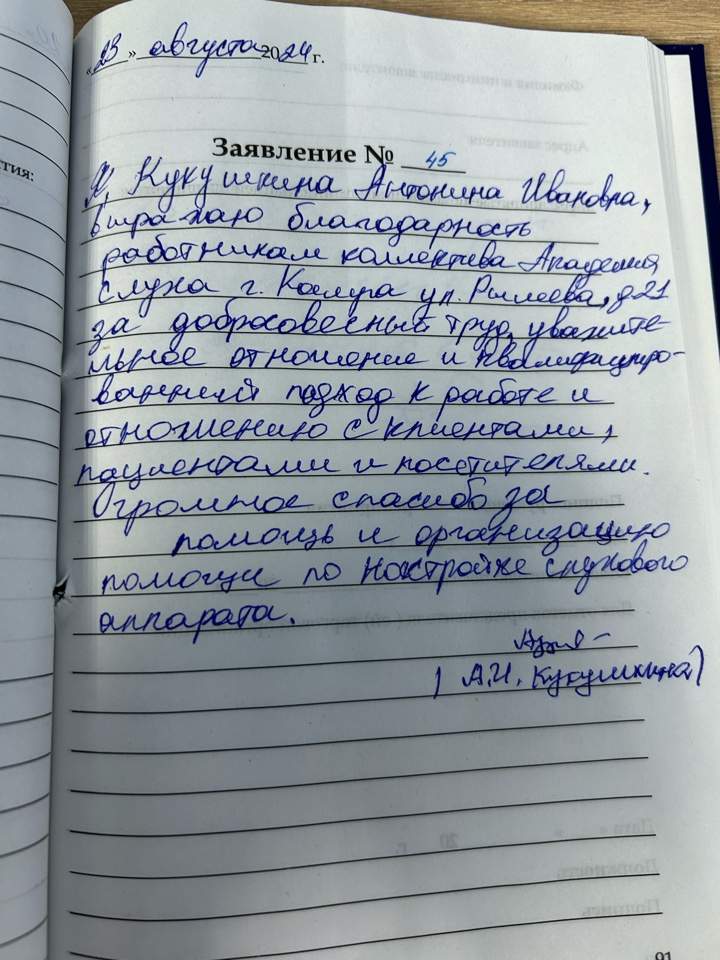 «23» августа 2024 г.
Заявление № 45
Я, Кукушкина Антонина Ивановна,
выражаю благодарность
работникам коллектива Академия
слуха г. Калуга ул. Рылеева, д 21
за добросовесный труд, уважите-
льное отношение и квалифициро-
ванный подход к работе и
отношению с клиентами,
пациентами и посетителями.
Огромное спасибо за
помощь и организацию
помощи по настройке слухового
аппарата.
(А.И. Кукушкина)
тия:
91